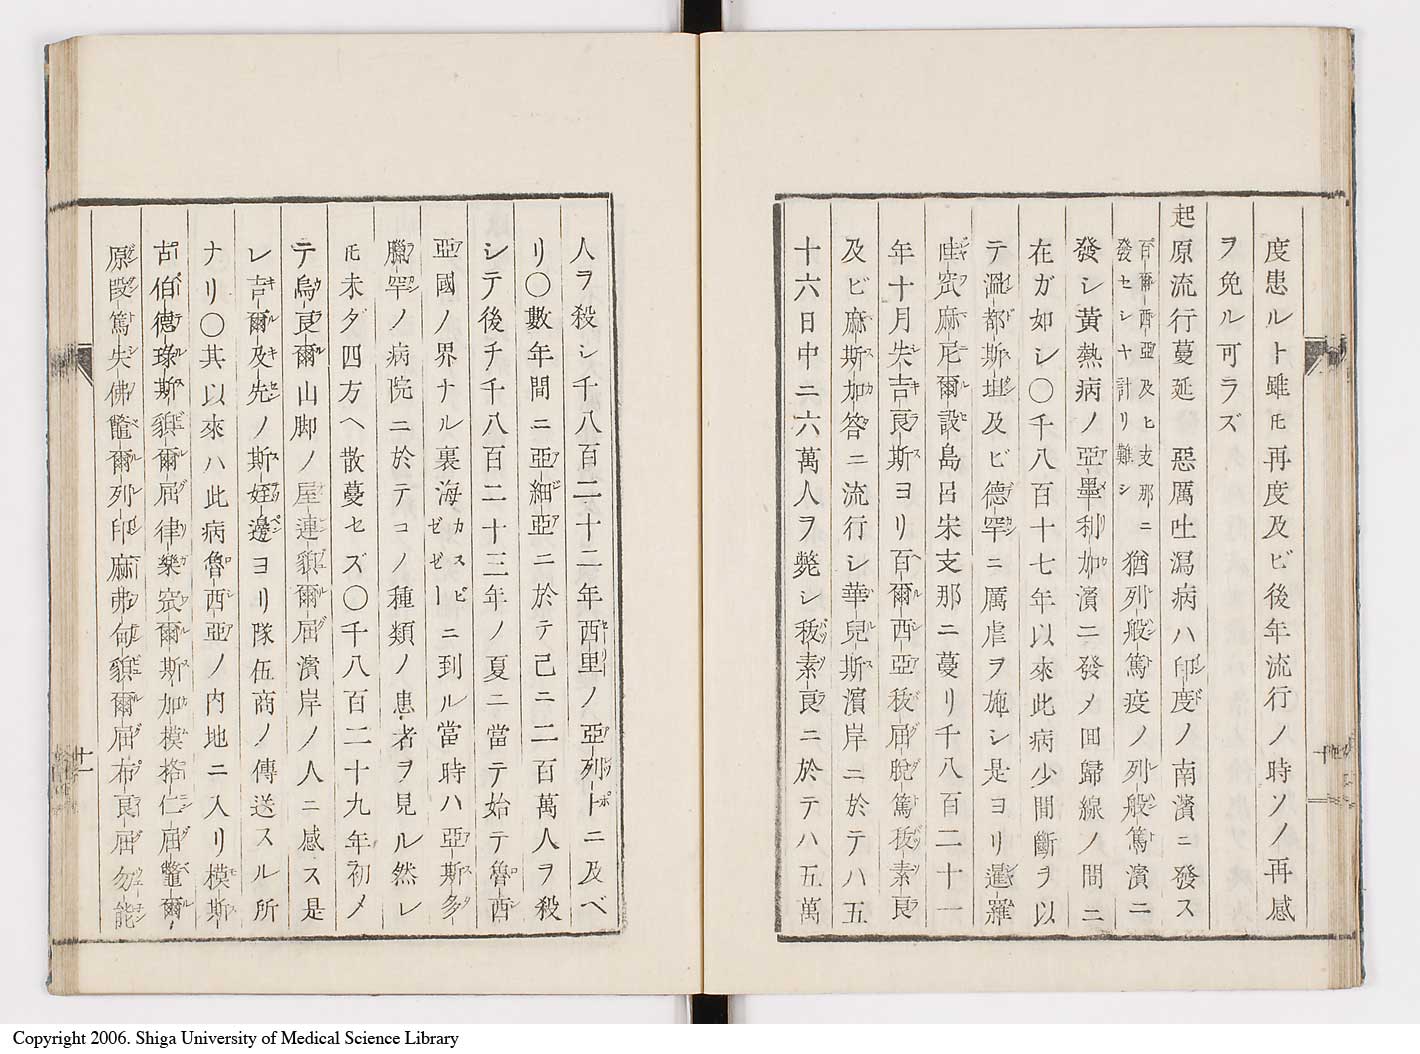 度患ルト雖𪜈再度及ビ後年流行ノ時ソノ再感
ヲ免ル可ラズ
起原流行蔓延 惡厲吐瀉病ハ印度ノ南濱ニ發ス
百爾西亞及ヒ支那ニ發セシヤ計リ難シ 猶列般篤疫ノ列般篤濱ニ
發シ黃熱病ノ亞墨利加濱ニ發メ回歸線ノ間ニ
在ガ如シ〇千八百十七年以來此病少間斷ヲ以
テ溫都斯坦及ビ德罕ニ厲虐ヲ施シ是ヨリ暹羅
麻尼爾島呂宋支那ニ蔓リ千八百二十一
年十月失吉良斯ヨリ百爾西亞秡屆脫篤秡素良
及ビ麻斯加答ニ流行シ華兒斯濱岸ニ於テハ五
十六日中ニ六萬人ヲ斃シ秡素良ニ於テハ五萬
人ヲ殺シ千八百二十二年西里ノ亞列卜ニ及ベ
リ〇數年間ニ亞細亞ニ於テ己ニ二百萬人ヲ殺
シテ後チ千八百二十三年ノ夏ニ當テ始テ魯西
亞國ノ界ナル裏海カスピゼゼーニ到ル當時ハ亞斯多
臘罕ノ病院ニ於テコノ種類ノ患者ヲ見ル然レ
𪜈未ダ四方ヘ散蔓セズ〇千八百二十九年初メ
テ烏良爾山脚ノ屋連貌爾屆濱岸ノ人ニ感ス是
レ吉爾及先ノ斯姪邊ヨリ隊伍商ノ傳送スル所
ナリ〇其以來ハ此病魯西亞ノ内地ニ入リ模斯
古伯德琭斯貌爾屆律樂窊爾斯加模格仁屆鼈爾
原段篤失佛鼈爾列印麻弗何貌爾屆布良屆勿能
十一